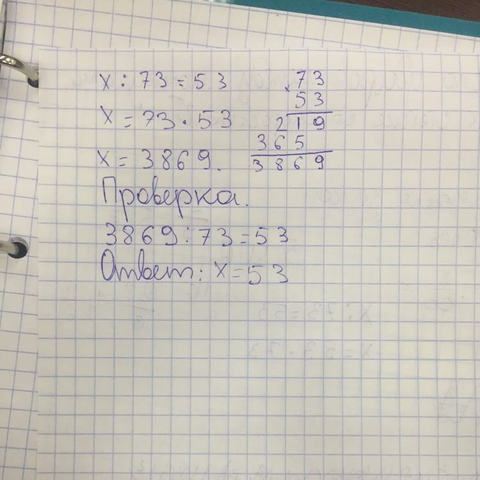 x : 73 = 53
x = 73 · 53
x = 3869.
73
53
219
365
3869
Проверка.
3869 : 73 = 53
Ответ: x = 53